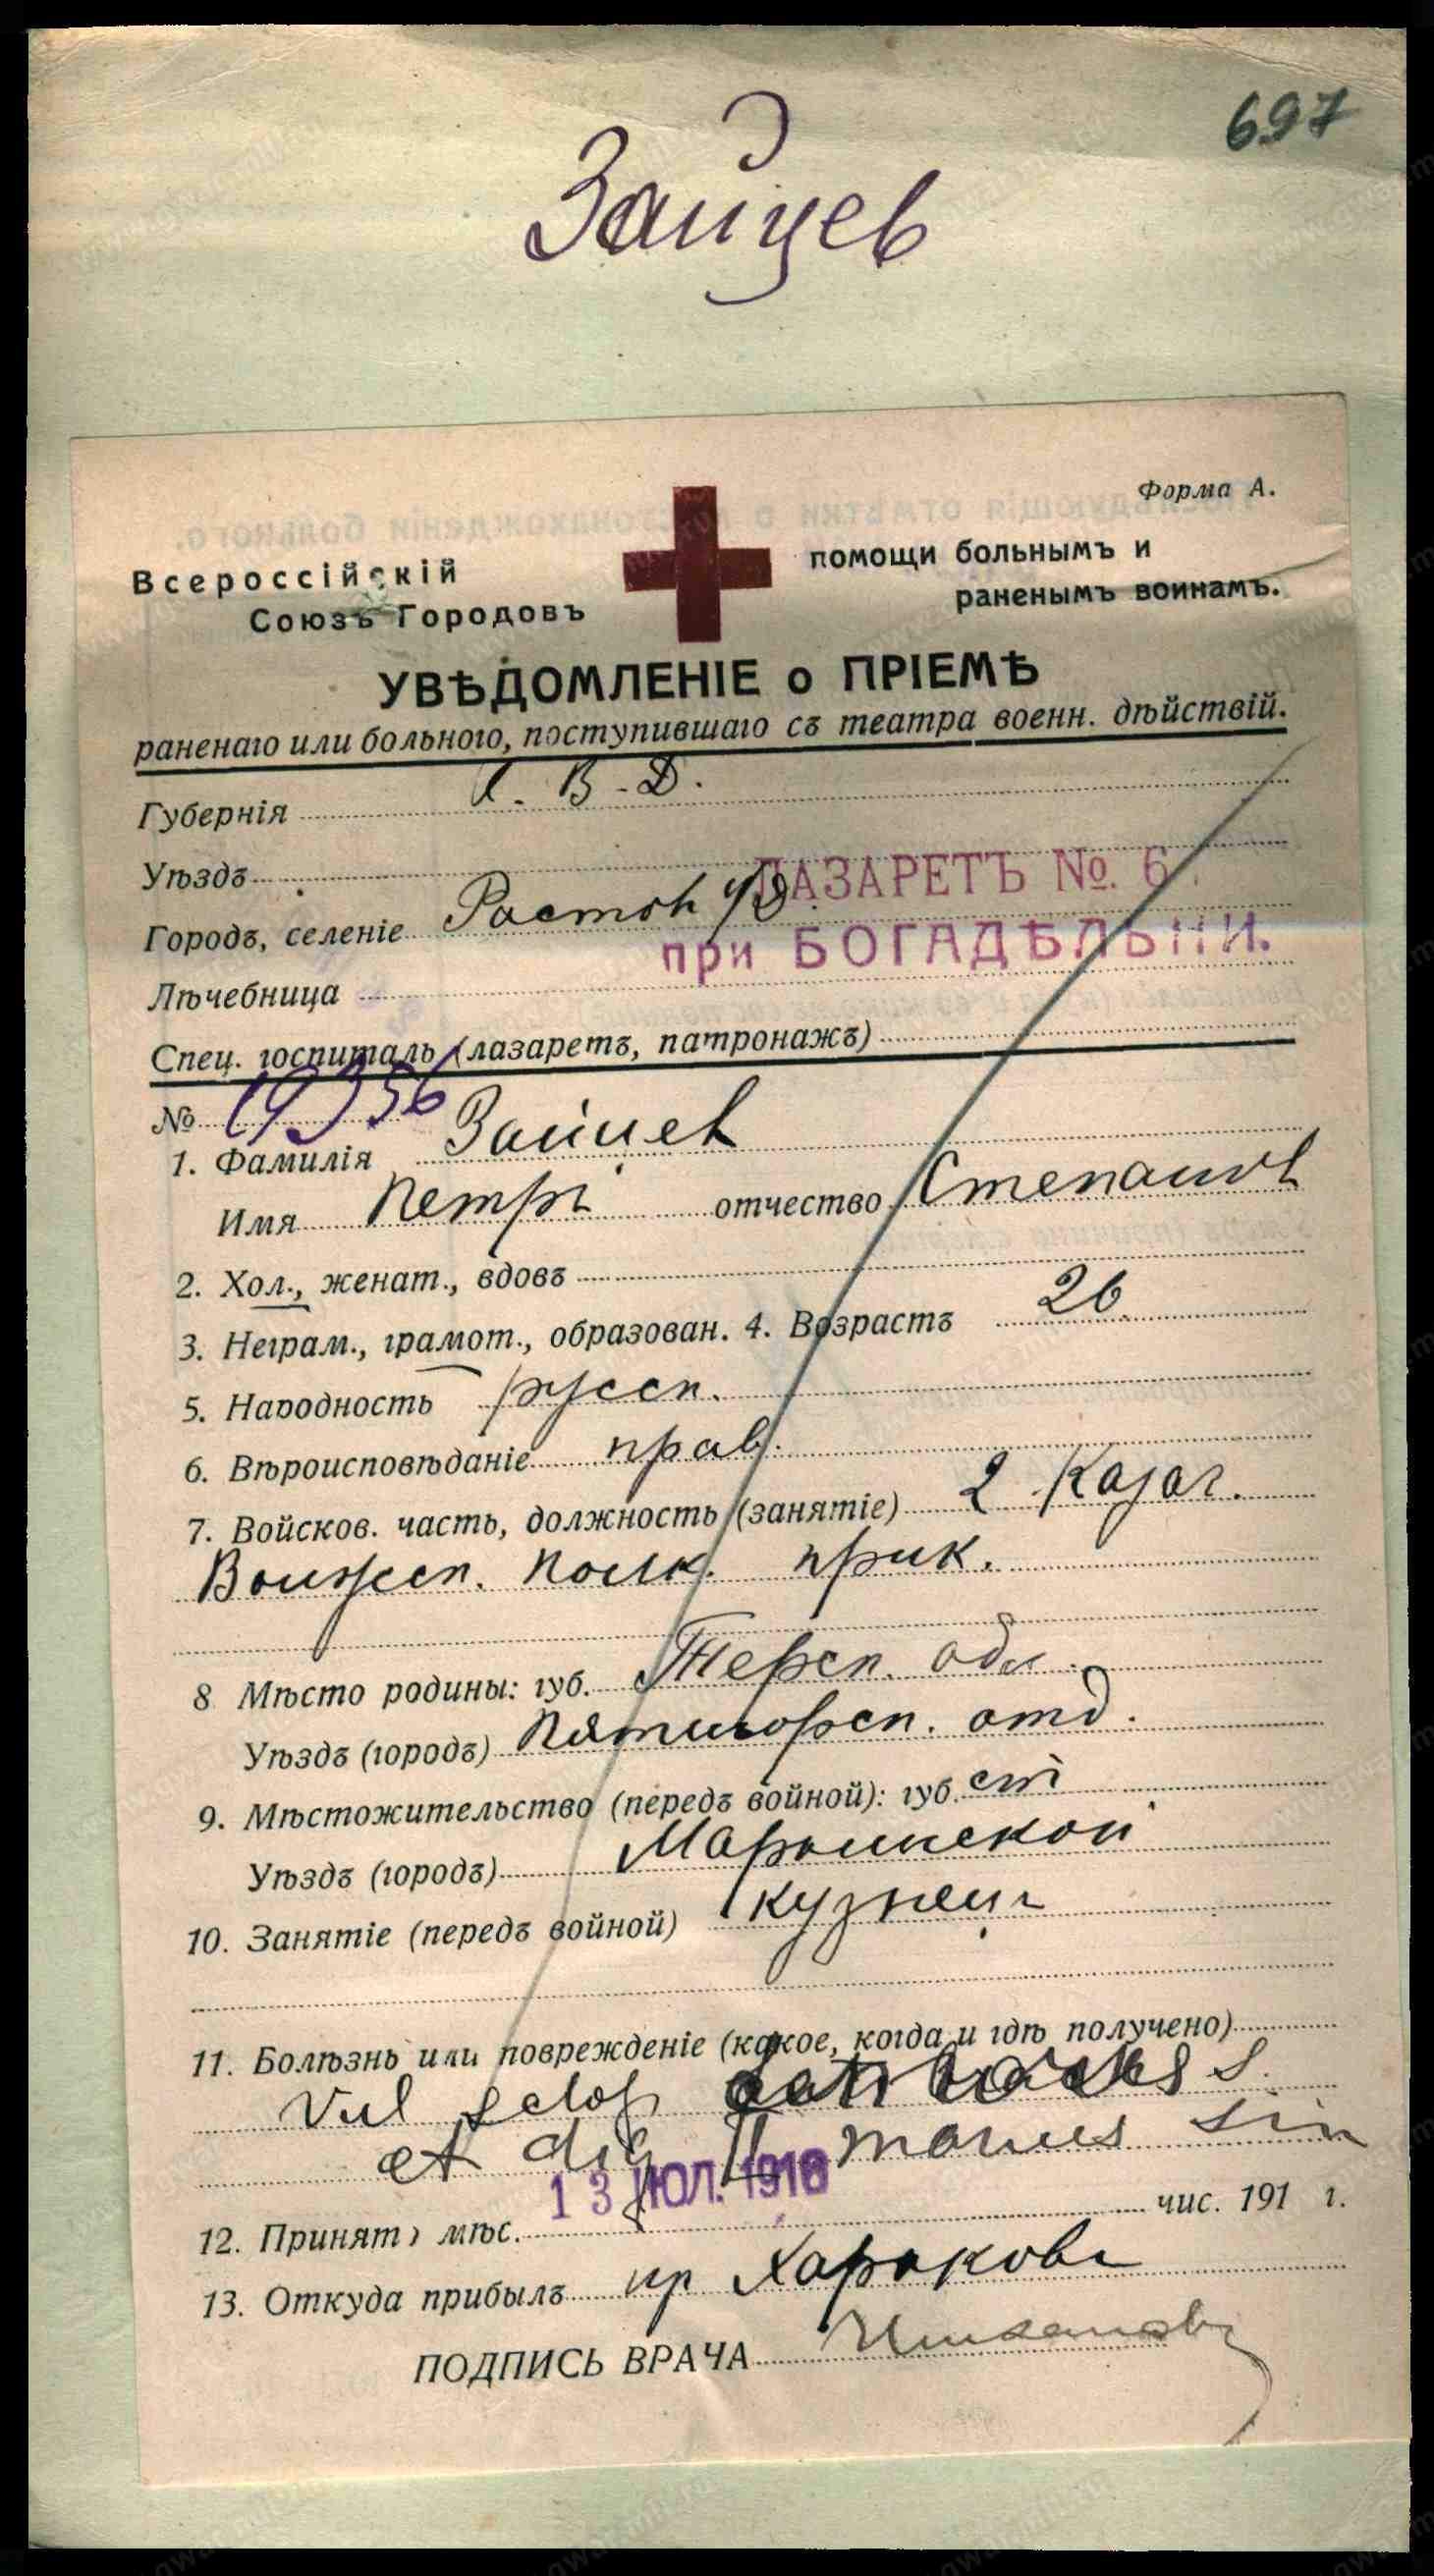 697
Зайцев
Форма А.
Всероссійскій
Союзъ Городовъ
помощи больнымъ и
раненымъ воинамъ.
УВѢДОМЛЕНІЕ о ПРІЕМѢ
раненаго или больного, поступившаго съ театра военн. дѣйствій.
Губернія В. Д.
Уѣздъ
ЛАЗАРЕТЪ № 6
Городъ, селеніе Ростовъ н/Д
при БОГАДѢЛЬНИ.
Лѣчебница
Спец. госпиталь (лазаретъ, патронажъ)
№ 19356
1. Фамилія Зайцев
Имя Петръ отчество Степанов
2. Хол., женат., вдовъ
3. Неграм., грамот., образован. 4. Возрастъ 26
5. Народность русск.
6. Вѣроисповѣданіе прав.
7. Войсков. часть, должность (занятіе) 2 Казач.
Волжск. полк. прик.
8 Мѣсто родины: губ. Терск. обл.
Уѣздъ (городъ) Пятигорск. отд.
9. Мѣстожительство (передъ войной): губ. ст
Уѣздъ (городъ) Марьинской
10. Занятіе (передъ войной) кузнецъ
11. Болѣзнь или поврежденіе (какое, когда и гдѣ получено)
Vul sclop s.
et dig II manus sin
13 ІЮЛ. 1916
12. Принятъ мѣс. чис. 191 г.
13. Откуда прибылъ Харькова
ПОДПИСЬ ВРАЧА